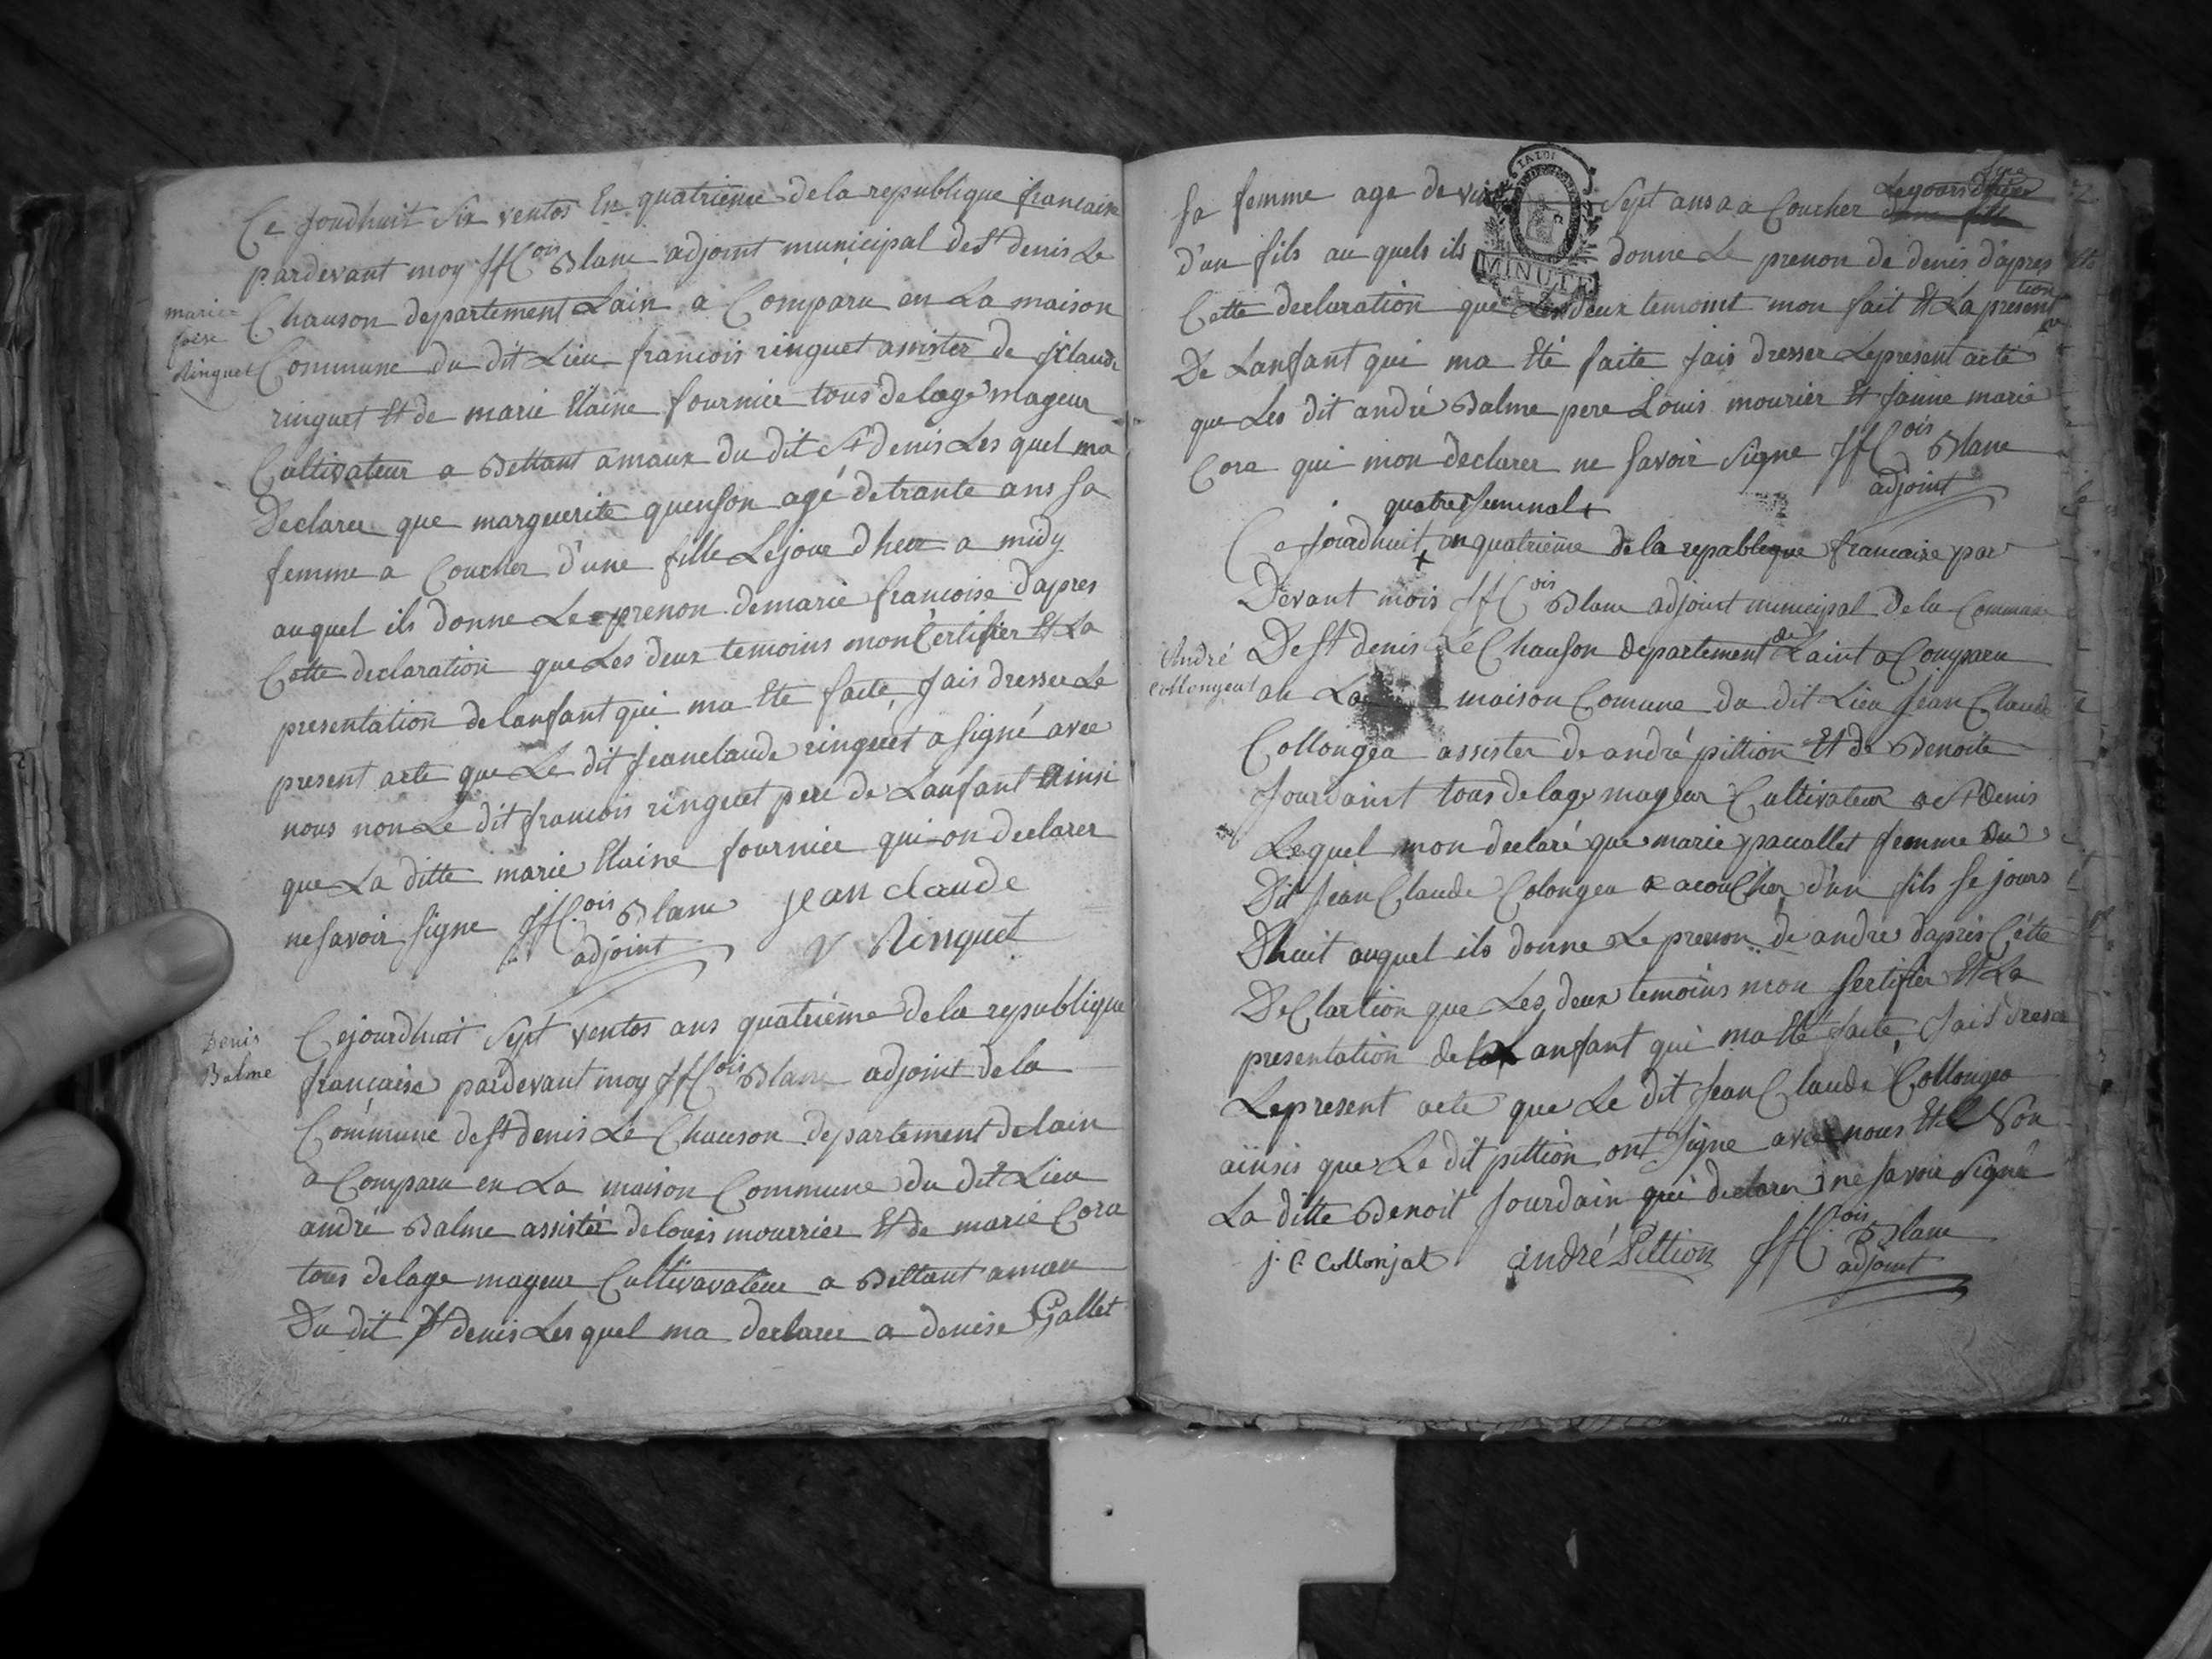 Ce jourdhuit Six ventos En quatrieme de la republique francaise
pardevant moy ff^ois Blanc adjoint municipal de St denis Le
Chauson departement Lain a Comparu en La maison
Commune du dit Lieu francois ringuet assister de j claude
ringuet Et de marie Elaine fournier tous de lage mageur
Cultivateur a Bettant amaux du dit St denis Les quel ma
Declaree que marguerite quenson agé de trante ans sa
femme a Coucher d'une fille Le jour d'hier a midy
auquel ils donne Le prenon de marie francoise dapres
Cette declaration que Les deux temoins mon Certifier Et La
presentation de lanfant qui ma Eté faite, jais dresser Le
present acte que Le dit jeanclaude ringuet a signé avec
nous non Le dit francois ringuet pere de Lanfant Ainsi
que La ditte marie Elaine fournier qui on declarer
ne savoir signe ff^ois Blanc adjoint jean claude
Ringuet
marie
foise
Ringuet
Cejourdhuit Sept ventos ans quatrieme de la republique
francaise pardevant moy ff^ois Blanc adjoint de la
Commune de St denis Le Chauson departement de lain
a Comparu en La maison Commune du dit Lieu
andré Balme assistér de louis mourrier Et de marie Cora
tous de lage mageur Cultivavateur a Bettant amau
Du dit St denis Les quel ma declarer a denise Gallet
Denis
Balme
sa femme age de Sept ans a a Coucher
d'un fils au quels ils donne Le prenon de denis d'apres
Cette declaration que Les deux temoint mon fait Et La presention
De Lanfant qui ma Eté faite jais dresser Lepresent acte
que Les dit andré Balme pere Louis mourier Et janne marie
Cora qui mon declarer ne savoir signe ff^ois Blanc
adjoint
MINUTE
quatre germinal +
Ce jourdhuit + en quatrieme de la republique francaise par
Devant mois ff^ois Blanc adjoint municipal De la Commune
De St denis Le Chauson departement de Laint a Comparu
en La maison Comune du dit Lieu Jean Claude
Collongea assister de andré pittion Et de Benoite
Jourdaint tous de lage mageur Cultivateur a St denis
Lequel mon declaré que marie pacallet femme Du
Dit Jean Claude Colongea a acoucher d'un fils se jours
Dhuit auquel ils donne Le prenon de andre dapres Cétte
DeClartion que Les deux temoins mon sertifier Et La
presentation de Lanfant qui ma Eté faite, jais dreser
Lepresent acte que Le dit Jean Claude Collongea
ainsis que Le dit pittion ont signe avec nous Et Non
La ditte Benoit Jourdain qui declarer ne savoir signé
j. C Collonjat andré Pittion ff^ois Blanc
adjoint
André
Collongeat